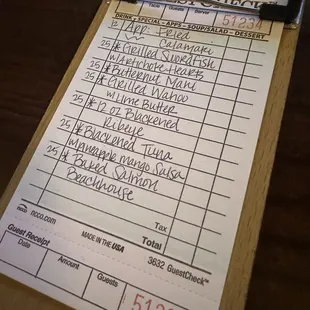 Guests Server
51232
DRINK, SPECIAL - APPS - SOUP/SALAD - DESSERT
App: Fried
Calamari
25 * Grilled Swordfish
w/Artichoke Hearts
25 * Butternut Mahi
25 * Grilled Wahoo
w/Lime Butter
* 12 oz Blackened
Ribeye
25 * Blackened Tuna
w/pineapple mango salsa
25 * Baked Salmon
Beachhouse
Tax
Total
ncco.com
MADE IN THE USA
3632 GuestCheck™
Guest Receipt
Date
Amount
Guests